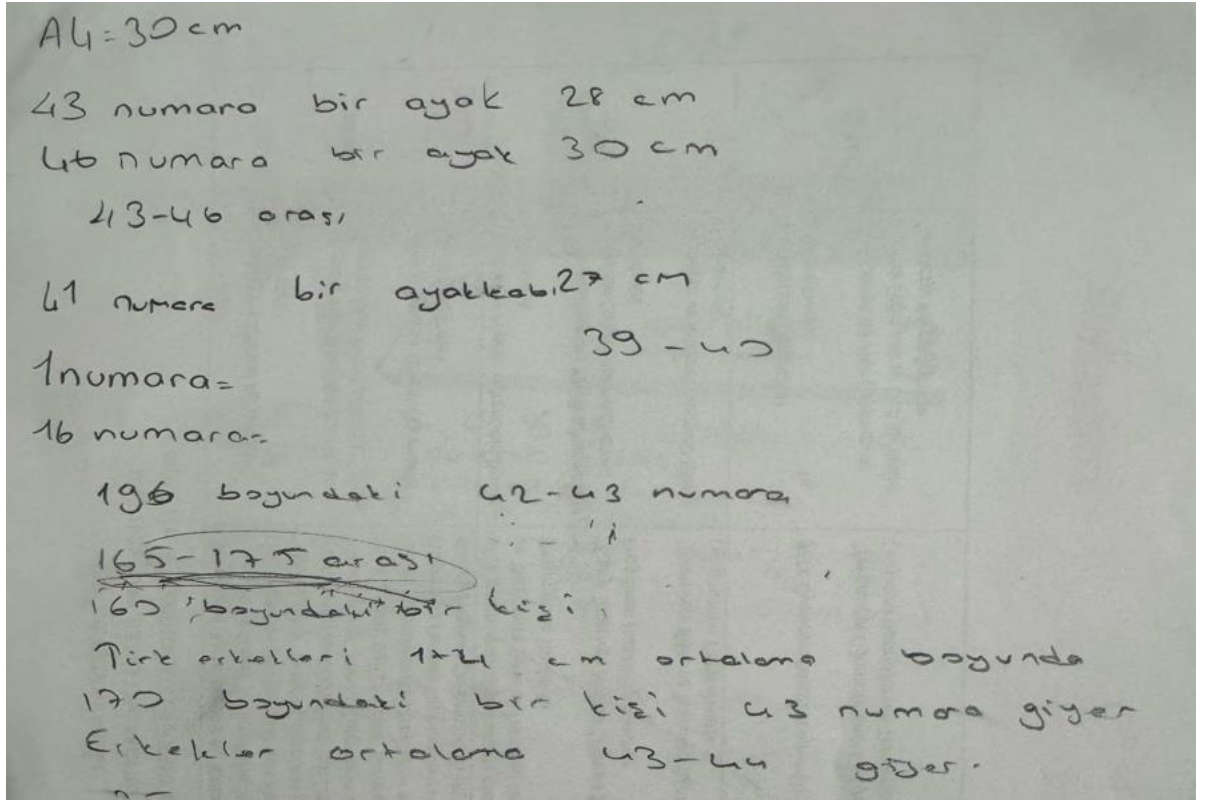 A4=30 cm
43 numara bir ayak 28 cm
46 numara bir ayak 30 cm
43-46 arası
41 numara bir ayakkabı 27 cm
39-40
1 numara=
16 numara=
196 boyundaki 42-43 numara
165-175 arası
160 boyundaki bir kişi
Türk erkekleri 174 cm ortalama boyunda
170 boyundaki bir kişi 43 numara giyer
Erkekler ortalama 43-44 giyer.